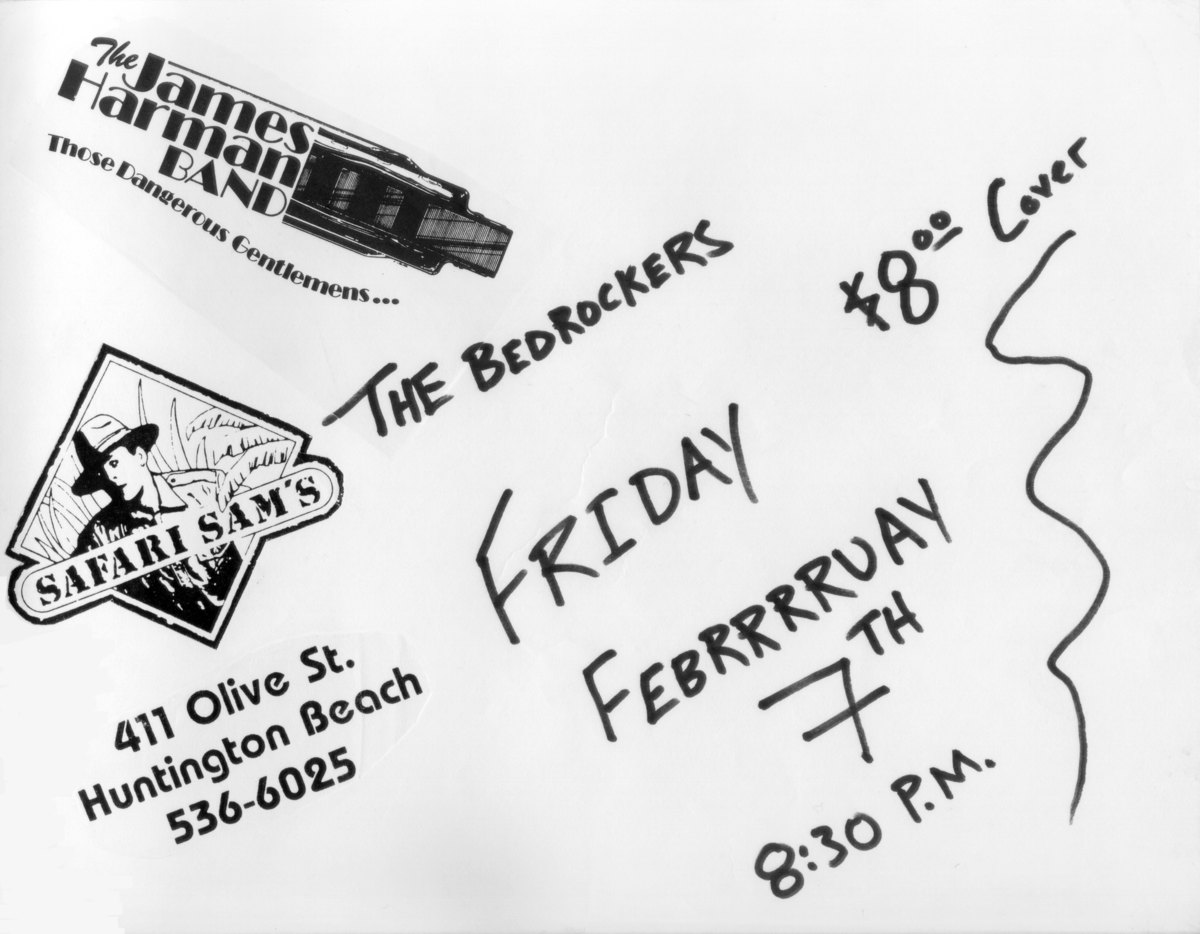 The
James
Harman
BAND
Those Dangerous Gentlemens...
THE BEDROCKERS
$8.00 Cover
SAFARI SAM'S
FRIDAY
FEBRRRRUAY
7TH
8:30 P.M.
411 Olive St.
Huntington Beach
536-6025